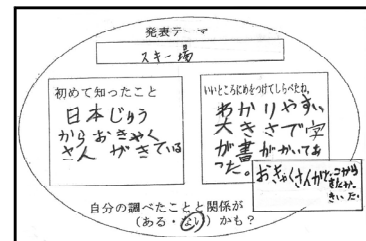 発表テーマ
スキー場
初めて知ったこと
日本じゅう
からおきゃく
さんがきている
いいところにめをつけてしらべたね。
わかりやすい
大きさで字
が書がかいてあ
った。
おきゃくさんがどこから
きたか
きいた。
自分の調べたことと関係が
(ある・ない)かも?